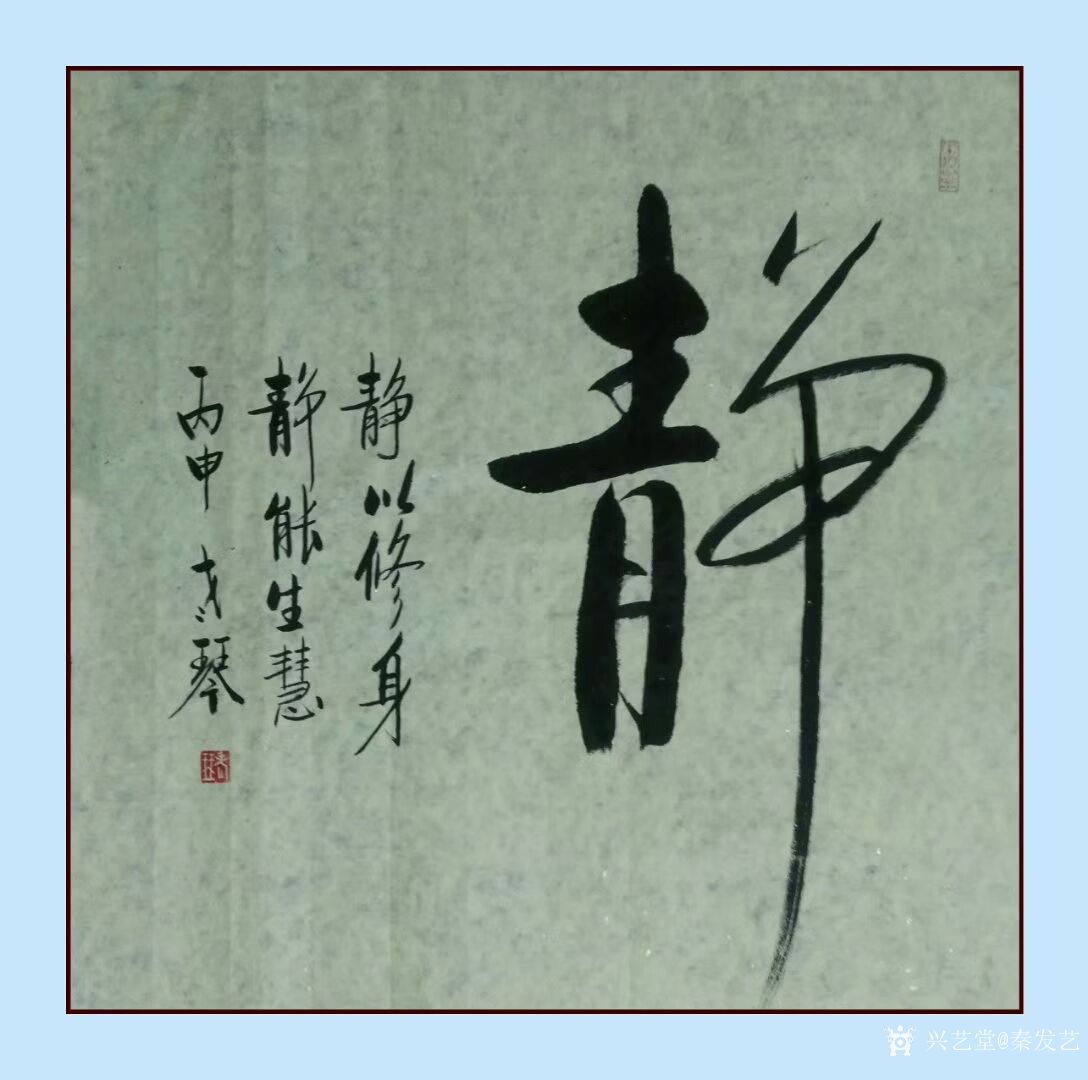 静
静以修身
静能生慧
丙申 琴
兴艺堂@秦发艺